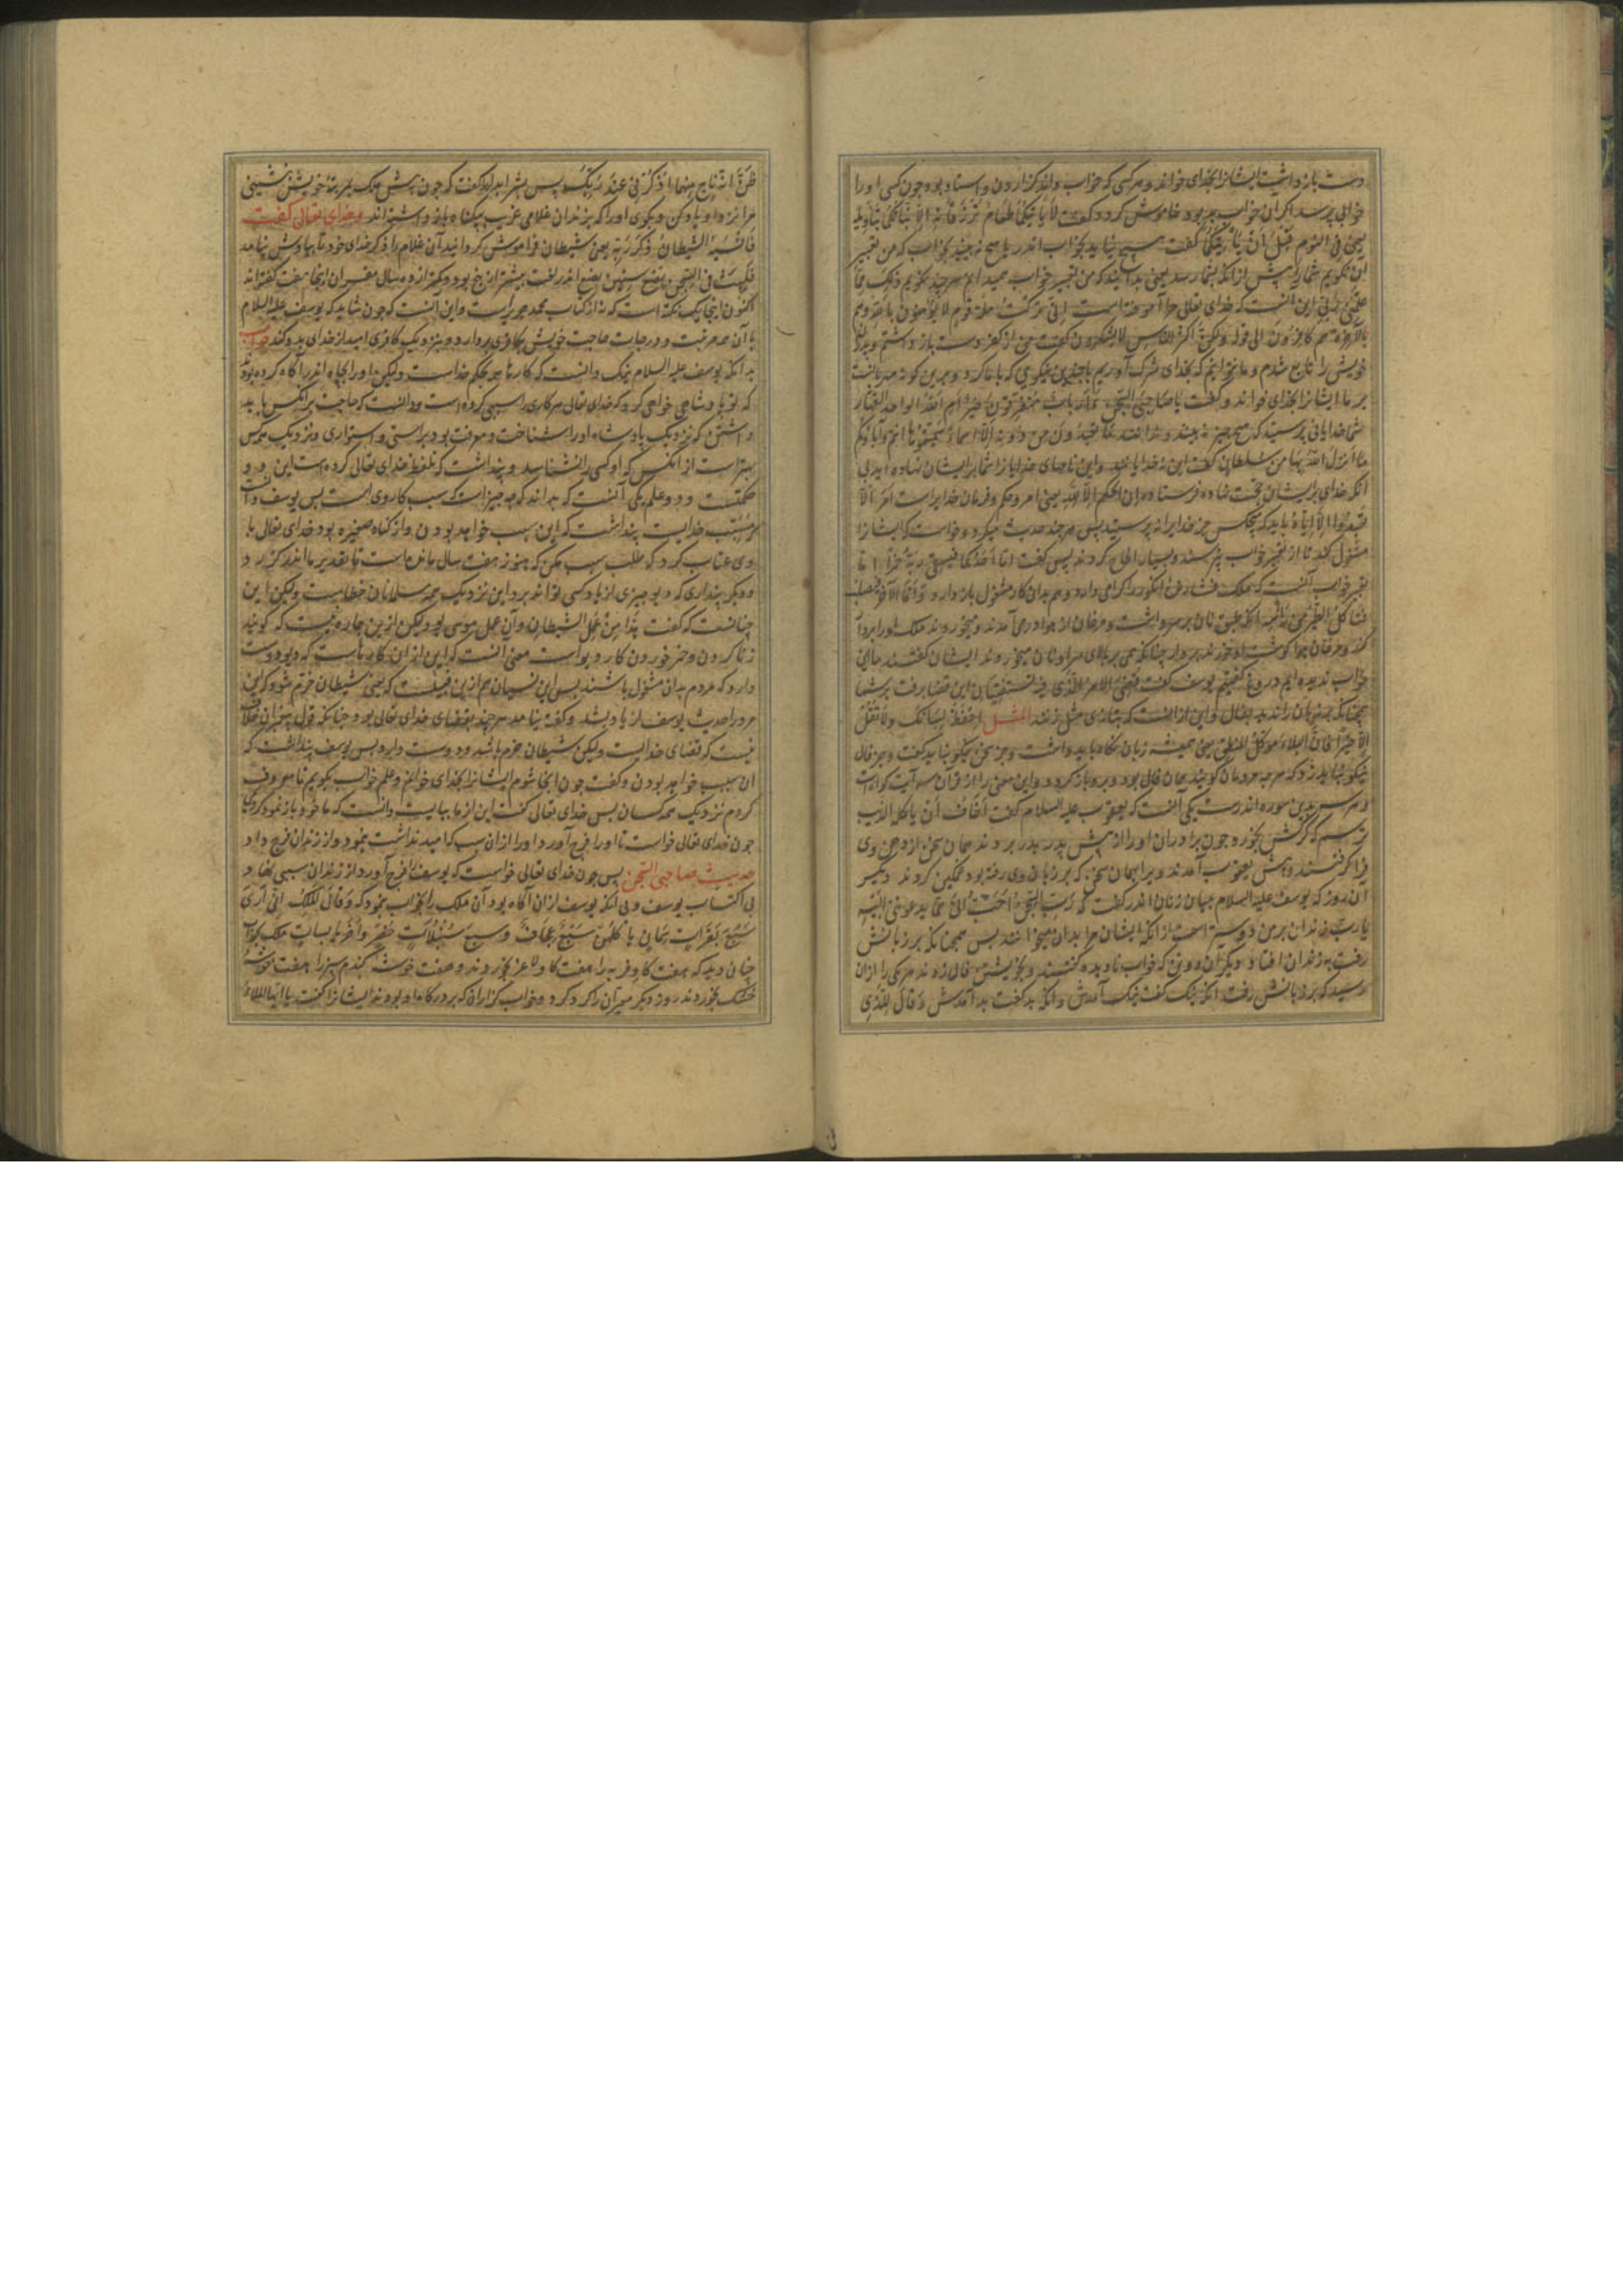 دست باز داشت ایشانرا بخدای خواند و هر کسی که خواب واندر گزاردن و استاد بود چون کسی او را
خوابی پرسد اگر آن خواب بد بود خاموش گردد گفت لا یأتیکما طعام ترزقانه الا نبأتکما بتأویله
یعنی فی النوم قبل ان یأتیکما گفت هیچ نیاید بخواب اندر یا هیچ نه بینید بخواب که من تعبیر
این نگویم شما را پیش از انکه بشما رسد یعنی بدانید که من تعبیر خواب همیدانم هر چند بگویم ذلکما مما
علمنی ربی این آنست که خدای تعالی مرا آموخته است انی ترکت ملة قوم لا یؤمنون بالله و هم
بالآخرة هم کافرون الی قوله ولکن اکثر الناس لا یشکرون گفت من از کفر دست باز داشتم و پدران
خویش را تابع شدم و ما نخواهیم که بخدای شرک آوریم با چندین نیکویی که با ما کرد و بدین گونه مهربانست
بر ما ایشانرا بخدای خواند و گفت یا صاحبی السجن ءارباب متفرقون خیر ام الله الواحد القهار
شما خدایانی پرستید که هیچ چیز نه بینند و ندانند ما تعبدون من دونه الا اسماء سمیتموها انتم و آباؤکم
ما انزل الله بها من سلطان گفت این نه خدایانند و این نامهای خدایان را شما بر ایشان نهاده اید بی
آنکه خدای بر ایشان حجت نهاده فرستاده ان الحکم الا لله یعنی امر و حکم و فرمان خدایراست امر الا
تعبدوا الا ایاه باید که هیچکس جز خدایرا نپرستید پس هر چند حدیث میکرد و خواست که ایشانرا
مشغول کند تا از تعبیر خواب نپرسند و بسیار الحاح کردند پس گفت اما احدکما فیسقی ربه خمرا اما
تعبیر خواب آنست که ملک فشاردن انگور را گرامی دارد و هم بدان کار مشغول باز دارد و اما الآخر فیصلب
فتأکل الطیر من رأسه آنکه طبق نان بر سر داشت و مرغان از هوا درمی آمدند و میخوردند ملک او را بر دار
کند و مرغان هوا گوشت او خورند بر دار چنانکه همی بر بالای سر او نان میخوردند ایشان گفتند ما این
خواب ندیده ایم دروغ گفتیم یوسف گفت قضی الامر الذی فیه تستفتیان این قضا برفت بر شما
همچنانکه بر زبان راندید بفال و این از آنست که بتازی مثل زنند المثل احفظ لسانک ولا تقل
الا خیرا فان البلاء موکل بالمنطق یعنی همیشه زبان نگاه باید داشت و جز سخن نیکو نباید گفت و جز فال
نیکو نباید زد که هر چه مردمان گویند همان فال بود و برو باز گردد و این معنی را از قرآن سه آیت گواه است
و هر سه بدین سوره اندرست یکی آنست که یعقوب علیه السلام گفت اخاف ان یأکله الذئب
ترسم که گرگش بخورد چون برادران او را از پیش پدر ببردند همان سخن از دهن وی
فرا گرفتند و پیش یعقوب آمدند و برا بهمان سخن که بر زبان وی رفته بود غمگین کردند دیگر
آن روز که یوسف علیه السلام میان زنان اندر گفت که رب السجن احب الی مما یدعوننی الیه
یا رب زندان بر من دوستر است از انکه ایشان مرا بدان میخوانند پس همچنانکه بر زبانش
رفت به زندان افتاد و دیگر آن دو تن که خواب نادیده گفتند و بخویشتن فال زدند هر یکی را از ان
رسید که بر زبانش رفت آنکه نیک گفت نیک آمدش و آنکه بد گفت بد آمدش و قال للذی
ظن انه ناج منهما اذکرنی عند ربک پس شرابدار را گفت که چون پیش ملک بمرتبه خویش نشینی
مرا نزد او یاد کن و بگوی او را که بزندان غلامی غریب بیگناه باز داشته اند و خدای تعالی گفت
فانسیه الشیطان ذکر ربه یعنی شیطان فراموش گردانید آن غلام را ذکر خدای خود تا بیادش نیامد
فلبث فی السجن بضع سنین بضع اندر لغت بیشتر از پنج بود و کمتر از ده سال مفسران اینجا هفت گفته اند
اکنون اینجا یک نکته است که نه از کتاب محمد جریرست و این آنست که چون شاید که یوسف علیه السلام
با آن همه مرتبت و درجات حاجت خویش بکافری بردارد و بنزدیک کافری امید از خدای بدو کند جواب
بدانکه یوسف علیه السلام نیک دانست که کارها همه بحکم خداست ولیکن او را بچاه اندر آگاه کرده بود
که تو پادشاهی خواهی کرد که خدای تعالی هر کاری را سببی کرده است و دانست که حاجت بر آنکس باید
داشتن که نزدیک پادشاه او را شناخت و معرفت بود براستی و استواری و نزدیک هر کس
بهتر است از آنکس که او کسی را نشناسد و پنداشت که تلفظ خدای تعالی کرده است این دو
حکمتست و دو علم یکی آنست که بداند که چه چیز است که سبب کار وی است پس یوسف دانست
مسبب خدایست پنداشت که این سبب خواهد بودن و از گناه صغیره بود خدای تعالی با
وی عتاب کرد که طلب سبب مکن که هنوز هفت سال مانده است تا تقدیر ما اندر گذرد
و دیگر پنداری که دیو چیزی از یاد کسی تواند برد این نزدیک همه مسلمانان خطاست ولیکن این
چنانست که گفت هذا من عمل الشیطان و آن عمل موسی بود لیکن ازین چاره نیست که گویند
زنا کردن و خمر خوردن کار دیو است معنی آنست که این از ان کارهاست که دیو دوست
دارد که مردم بدان مشغول باشند پس این نسیان هم ازین قبیلست که یعنی شیطان خرم شود که این
مرد را حدیث یوسف از یاد بشد و گفته نیامد هر چند بقضای خدای تعالی بود چنانکه قول پیغمبران خلاف
نیست که قضای خدایست ولیکن شیطان خرم باشد و دوست دارد پس یوسف پنداشت که
آن سبب خواهد بودن و گفت چون آنجا شوم ایشانرا بخدای خوانم و علم خواب بگویم تا معروف
گردم نزدیک همه کسان پس خدای تعالی گفت این از ما ببایست دانست که ما خود باز نمودیم
چون خدای تعالی خواست تا او را فرج آورد او را از ان سبب که امید نداشت بنمود و از زندان فرج داد
حدیث صاحبی السجن پس چون خدای تعالی خواست که یوسف را فرج آورد از زندان سببی نهاد
بی اکتساب یوسف و بی آنکه یوسف از ان آگاه بود آن ملک را بخواب بنمود که و قال الملک انی اری
سبع بقرات سمان یأکلهن سبع عجاف و سبع سنبلات خضر و اخر یابسات ملک بخواب
چنان دید که هفت گاو فربه را هفت گاو لاغر بخوردند و هفت خوشه گندم سبز را هفت خوشه
خشک بخوردند روز دیگر مهتران را گرد کرد و خواب گزاران که بر درگاه او بودند ایشانرا گفت یا ایها الملأ